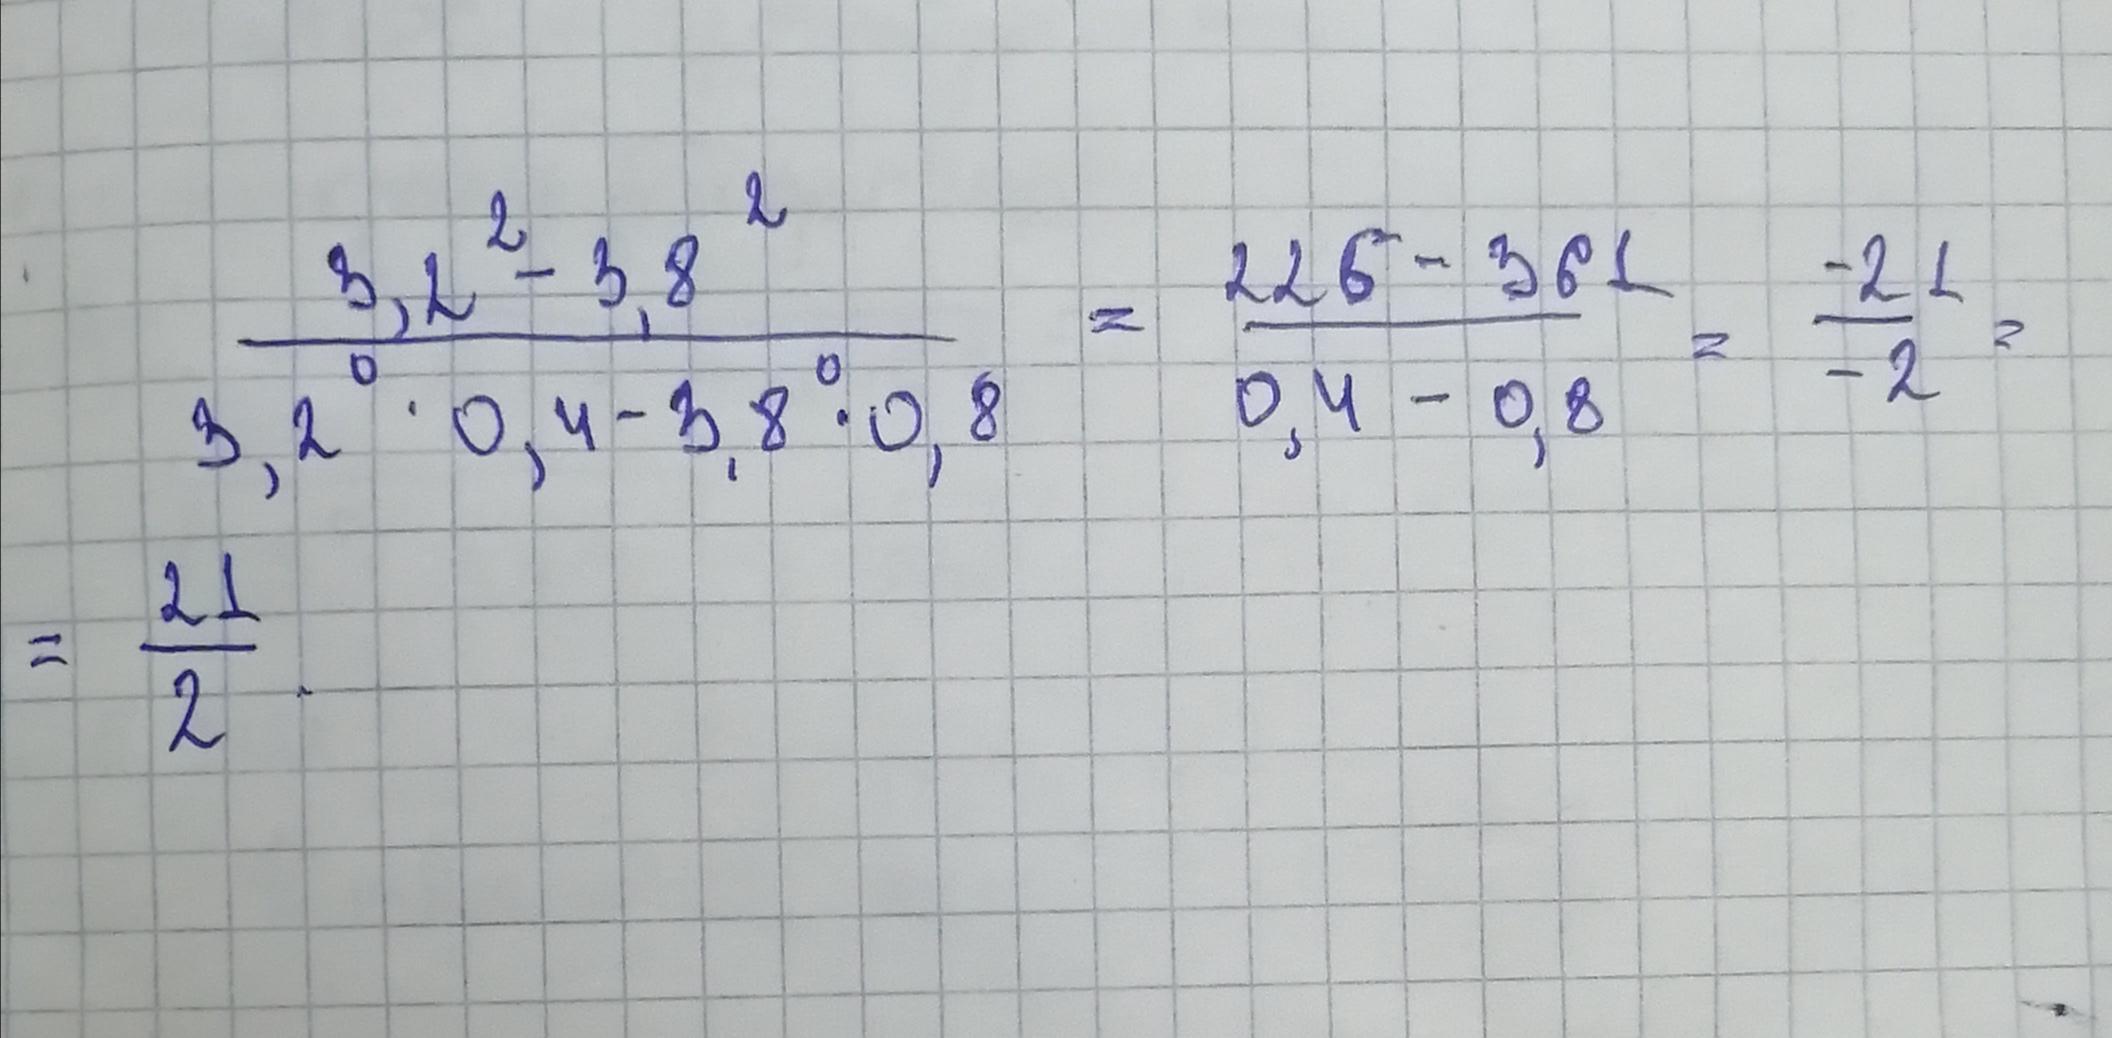 (3,2² - 3,8²) / (3,2⁰ · 0,4 - 3,8⁰ · 0,8) = (226 - 361) / (0,4 - 0,8) = (-21) / (-2) =
= 21 / 2 .